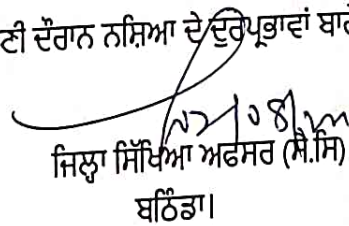 ਣੀ ਦੌਰਾਨ ਨਸ਼ਿਆ ਦੇ ਦੁਰਪ੍ਰਭਾਵਾਂ ਬਾਰੇ
ਜਿਲ੍ਹਾ ਸਿੱਖਿਆ ਅਫਸਰ (ਸੈ.ਸਿ)
ਬਠਿੰਡਾ।